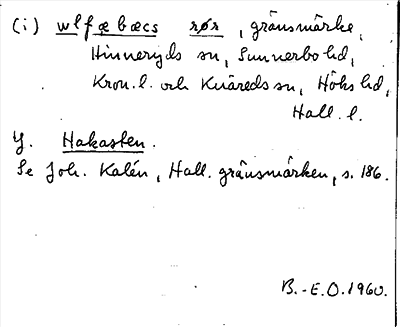 (i) wlfæbæcs rør, gränsmärke,
Hinneryds sn, Sunnerbo hd,
Kron. l. och Knäreds sn, Höks hd,
Hall. l.
Jf. Hakasten.
Se Joh. Kalén, Hall. gränsmärken, s. 186.
B.-E.O. 1960.